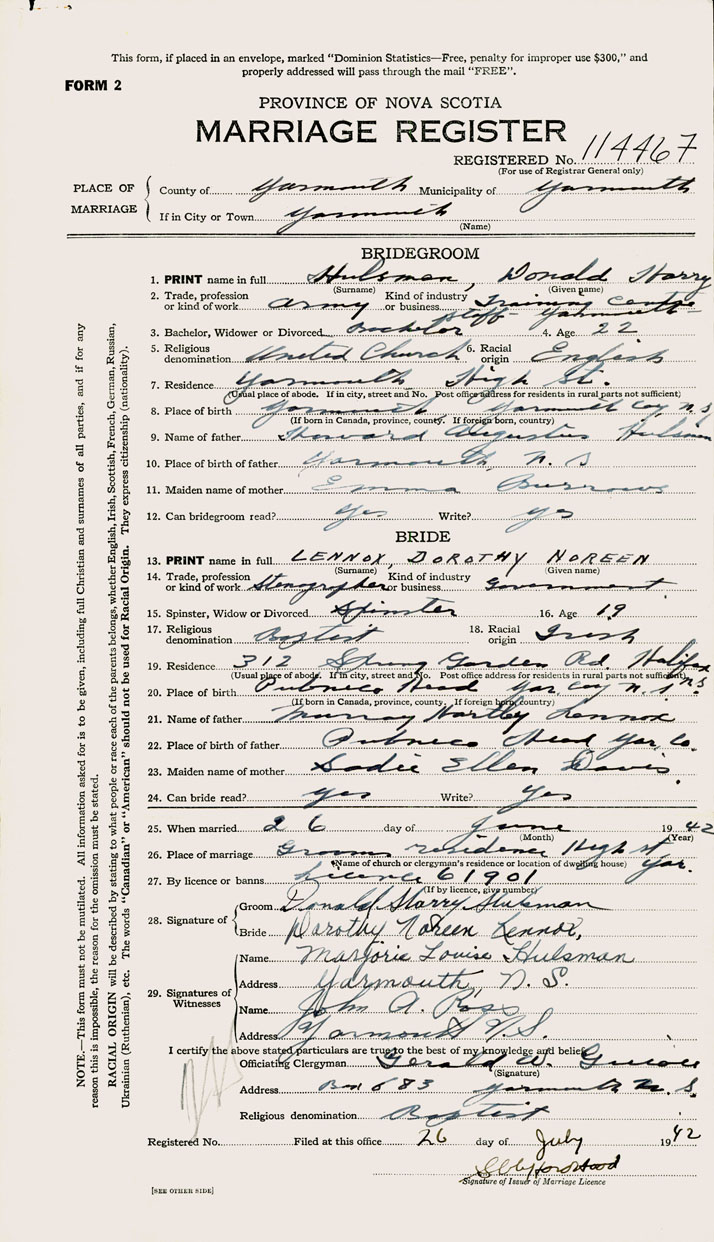 This form, if placed in an envelope, marked "Dominion Statistics—Free, penalty for improper use $300," and
properly addressed will pass through the mail "FREE".
FORM 2
PROVINCE OF NOVA SCOTIA
MARRIAGE REGISTER
REGISTERED No. 114467
(For use of Registrar General only)
PLACE OF MARRIAGE
County of Yarmouth Municipality of Yarmouth
If in City or Town Yarmouth
(Name)
BRIDEGROOM
1. PRINT name in full Hulsman, Donald Harry
(Surname) (Given name)
2. Trade, profession or kind of work Army Kind of industry or business Training Centre
Staff Yarmouth
3. Bachelor, Widower or Divorced Bachelor 4. Age 22
5. Religious denomination United Church 6. Racial origin English
7. Residence Yarmouth High St.
(Usual place of abode. If in city, street and No. Post office address for residents in rural parts not sufficient)
8. Place of birth Yarmouth Yarmouth Coy N.S
(If born in Canada, province, county. If foreign born, country)
9. Name of father Howard Augustus Hulsman
10. Place of birth of father Yarmouth N.S
11. Maiden name of mother Emma Burrows
12. Can bridegroom read? Yes Write? yes
BRIDE
13. PRINT name in full LENNOX, DOROTHY NOREEN
(Surname) (Given name)
14. Trade, profession or kind of work Stenographer Kind of industry or business Government
15. Spinster, Widow or Divorced Spinster 16. Age 19
17. Religious denomination Baptist 18. Racial origin Irish
19. Residence 312 Spring Garden Rd. Halifax N.S
(Usual place of abode. If in city, street and No. Post office address for residents in rural parts not sufficient)
20. Place of birth Pubnico Head Yar. Coy N.S
(If born in Canada, province, county. If foreign born, country)
21. Name of father Murray Hartley Lennox
22. Place of birth of father Pubnico Head Yar. Co.
23. Maiden name of mother Sadie Ellen Davis.
24. Can bride read? yes Write? Yes
25. When married 26 day of June 1942
(Month) (Year)
26. Place of marriage Grooms residence High st Yar.
(Name of church or clergyman's residence or location of dwelling house)
27. By licence or banns licence 61901
(If by licence, give number)
28. Signature of
Groom Donald Harry Hulsman
Bride Dorothy Noreen Lennox,
29. Signatures of Witnesses
Name Marjorie Louise Hulsman
Address Yarmouth, N.S.
Name John A. Ross
Address Yarmouth N.S.
I certify the above stated particulars are true to the best of my knowledge and belief
Officiating Clergyman Gerald W.
(Signature)
Address Box 683 Yarmouth N.S.
Religious denomination Baptist
Registered No. Filed at this office 26 day of July 1942
Signature of Issuer of Marriage Licence
[SEE OTHER SIDE]
NOTE.—This form must not be mutilated. All information asked for is to be given, including full Christian and surnames of all parties, and if for any
reason this is impossible, the reason for the omission must be stated.
RACIAL ORIGIN will be described by stating to what people or race each of the parents belongs, whether English, Irish, Scottish, French, German, Russian,
Ukrainian (Ruthenian), etc. The words "Canadian" or "American" should not be used for Racial Origin. They express citizenship (nationality).